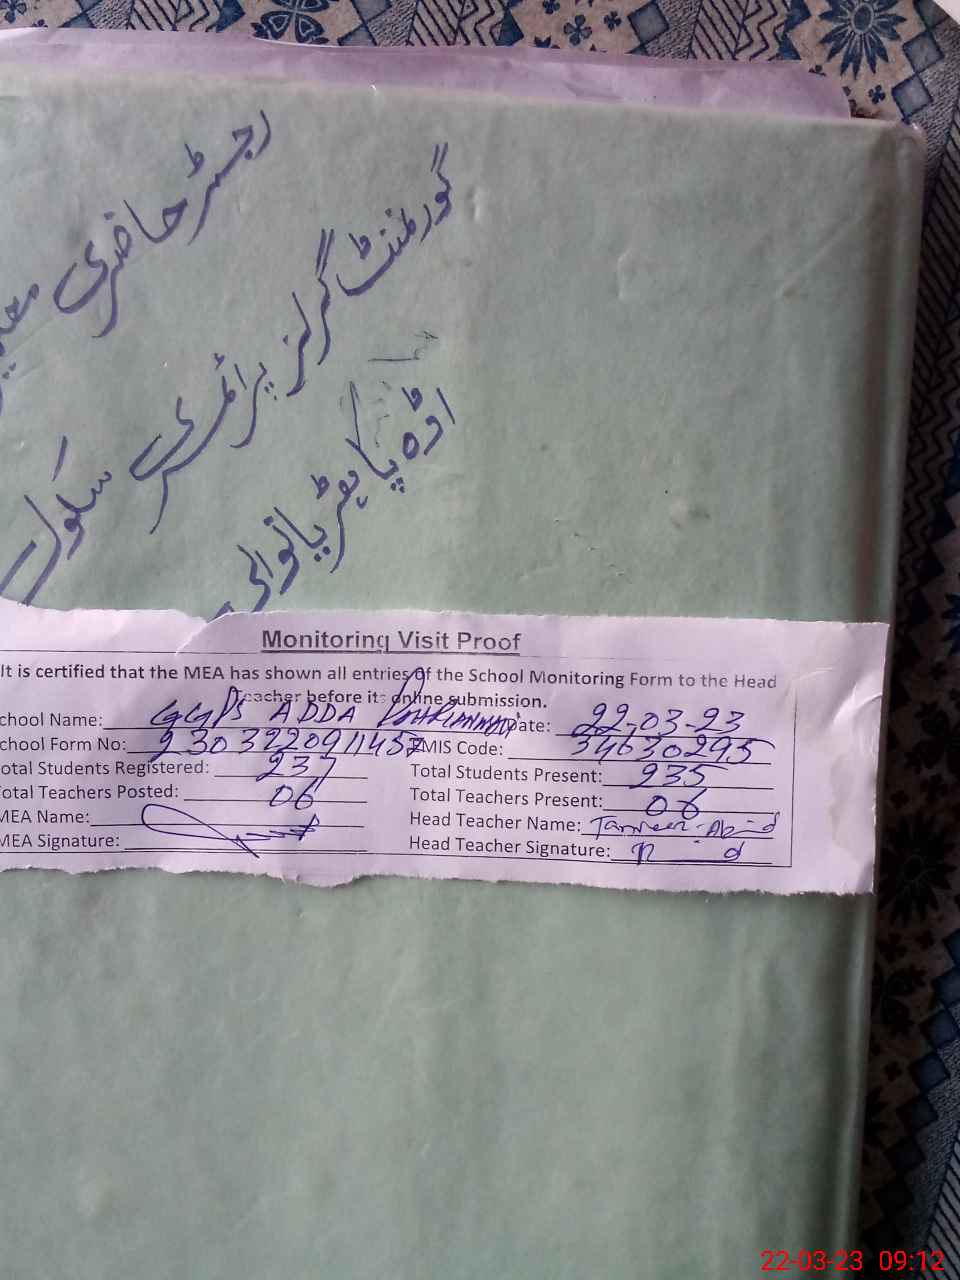 رجسٹر حاضری
گورنمنٹ گرلز پرائمری سکول
اڈہ پاہڑیانوالی
Monitoring Visit Proof
It is certified that the MEA has shown all entries of the School Monitoring Form to the Head
Teacher before its online submission.
chool Name: GGPS ADDA Date: 22-03-23
chool Form No: MIS Code: 34630295
otal Students Registered: 237 Total Students Present: 235
otal Teachers Posted: 06 Total Teachers Present: 06
MEA Name: Head Teacher Name: Tanveer Abid
MEA Signature: Head Teacher Signature:
22-03-23 09:12